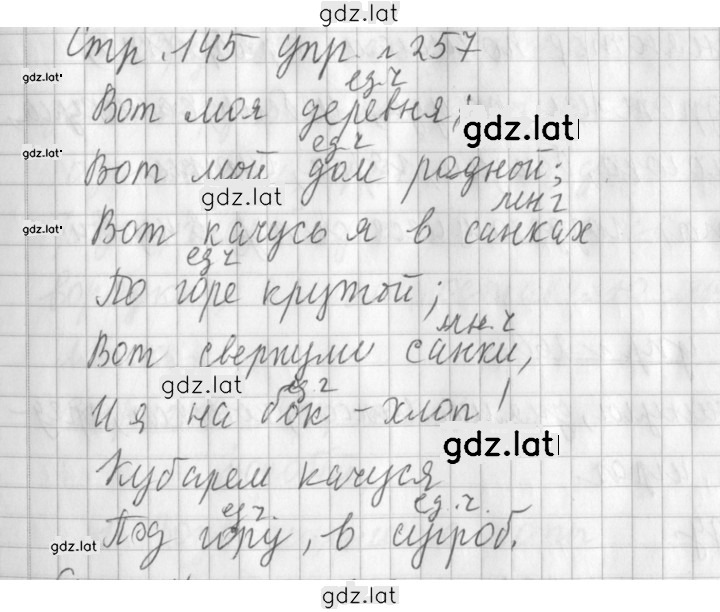 gdz.lat
Стр. 145 упр. 257
gdz.lat
ед.ч
Вот моя деревня;
gdz.lat
gdz.lat
ед.ч
Вот мой дом родной;
gdz.lat
мн.ч
Вот качусь я в санках
gdz.lat
ед.ч
По горе крутой;
мн.ч
Вот свернули санки,
gdz.lat
ед.ч
И я на бок - хлоп!
gdz.lat
Кубарем качуся
ед.ч. ед.ч.
Под гору, в сугроб.
gdz.lat
gdz.lat